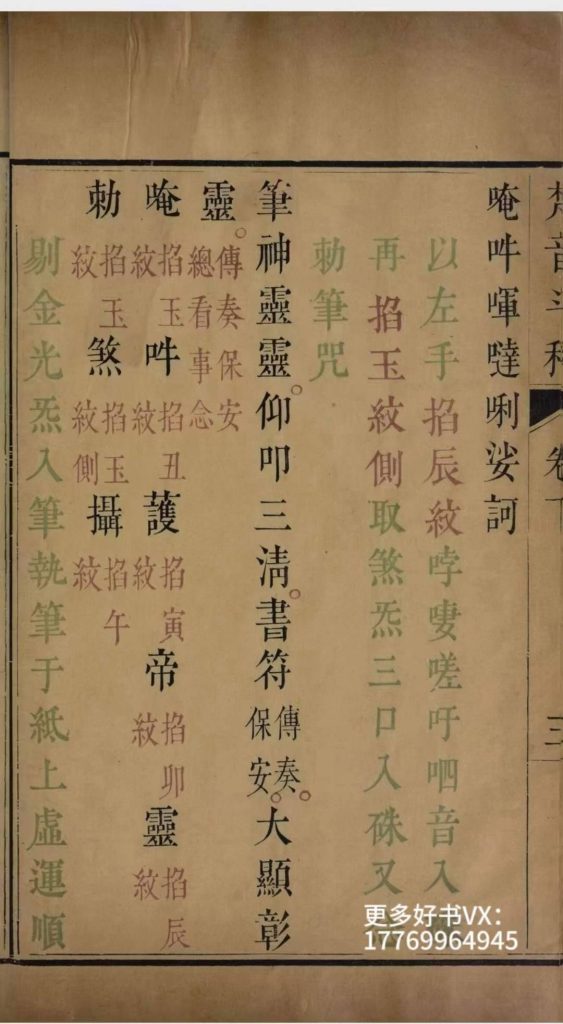 梵音斗科 卷下 三
唵吽喗噠唎娑訶
以左手掐辰紋哱嘍嗟吁呬音入
再掐玉紋側取煞炁三口入硃又
勅筆咒
筆神靈靈。仰叩三淸。書符傳奏保安。大顯彰
靈。傳奏保安總看事念
唵掐玉紋吽掐丑紋護掐寅紋帝掐卯紋靈掐辰紋
勅掐玉紋煞掐玉紋側攝掐午紋
剔金光炁入筆執筆于紙上虛運順
更多好书VX：
17769964945